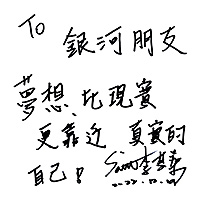 To
銀河朋友
夢想,比現實
更靠近 真實的
自己!